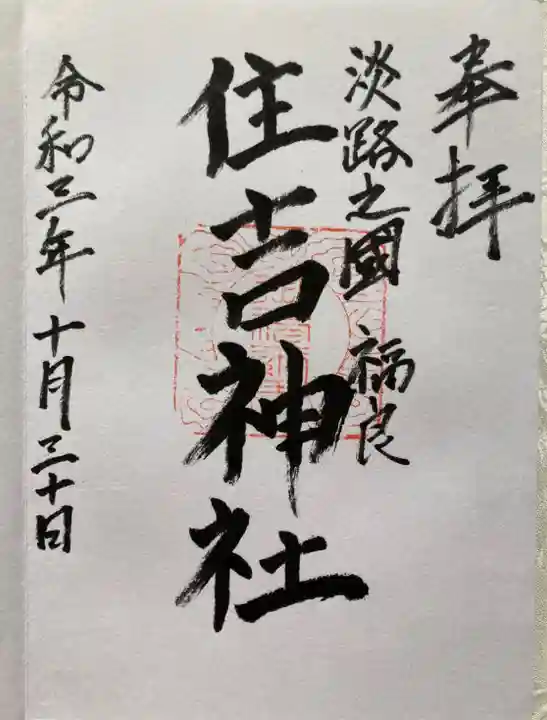 奉拝
淡路之國 福良
住吉神社
令和三年十月三十日